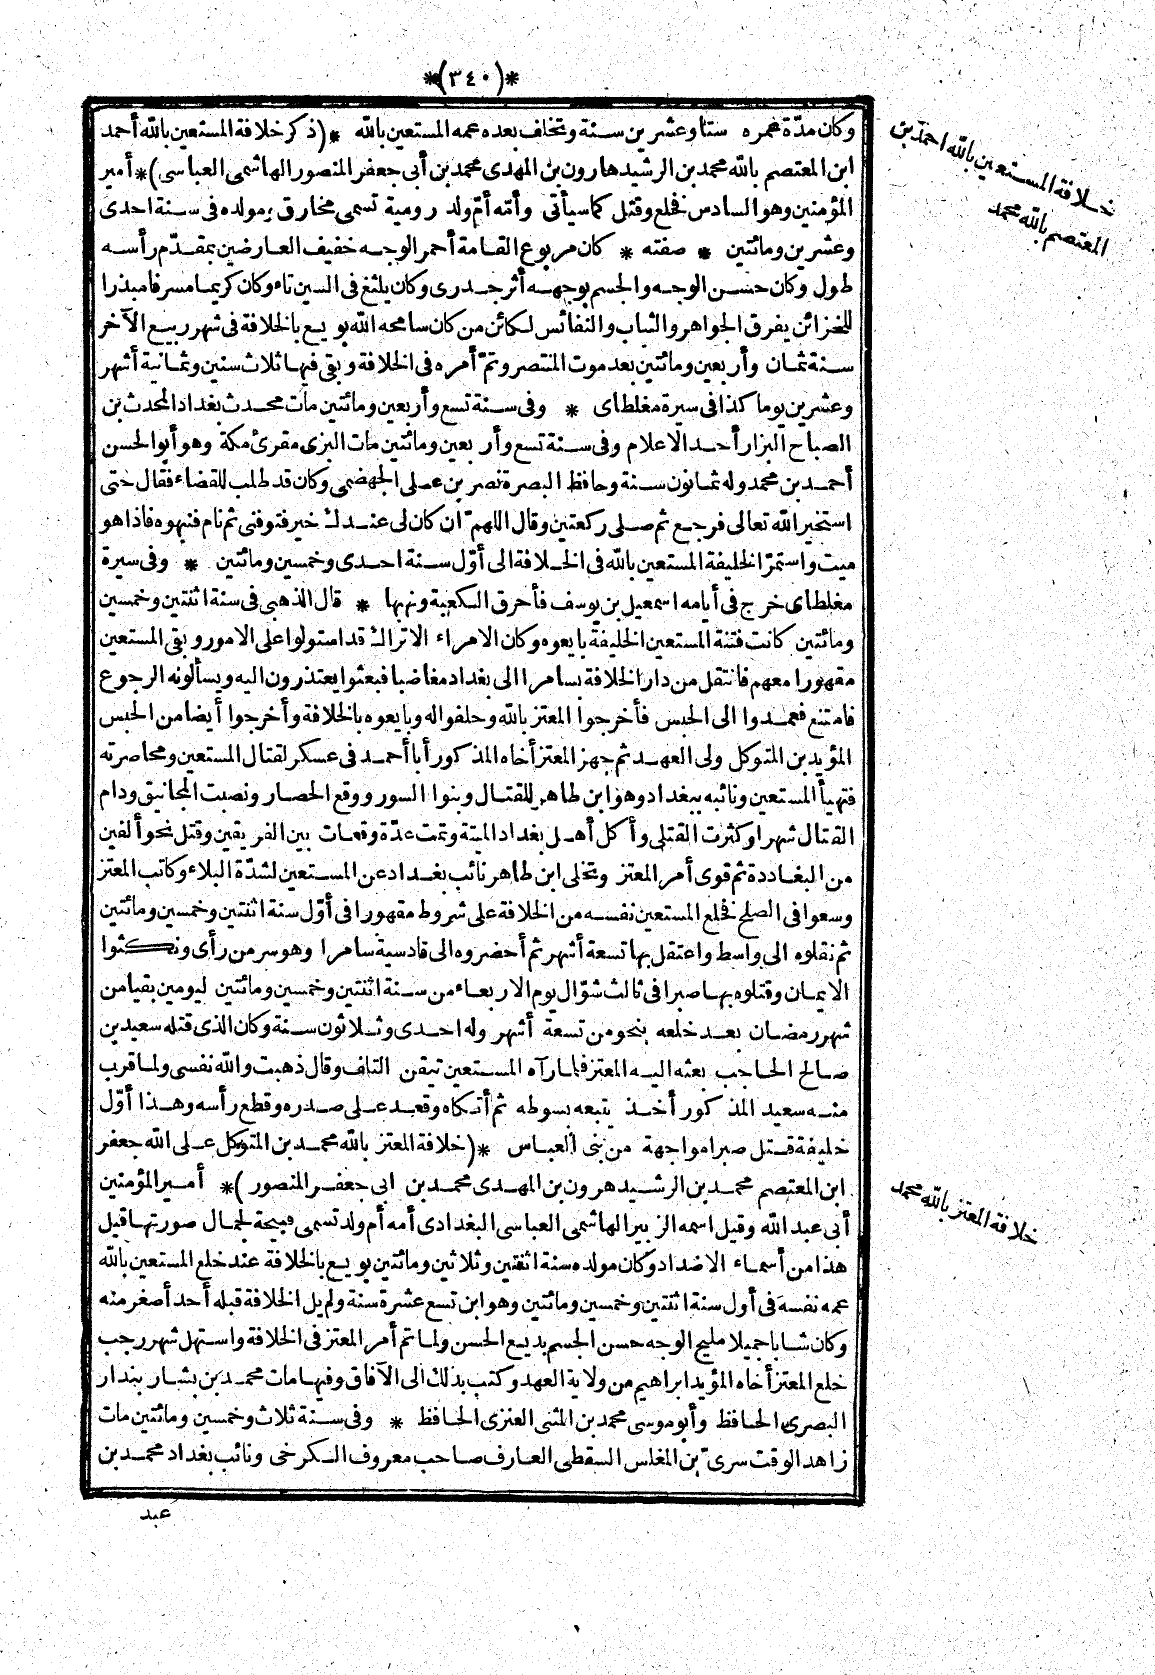 *(٣٤٠)*
وكان مدّة عمره ستا وعشرين سنة وتخلف بعده عمه المستعين بالله *(ذكر خلافة المستعين بالله أحمد
ابن المعتصم بالله محمد بن الرشيد هارون بن المهدى محمد بن أبى جعفر المنصور الهاشمى العباسى)* أمير
المؤمنين وهو السادس فخلع وقتل كما سيأتى وأمّه أمّ ولد رومية تسمى مخارق ومولده فى سنة احدى
وعشرين ومائتين * صفته * كان مربوع القامة أحمر الوجه خفيف العارضين بمقدّم رأسه
طول وكان حسن الوجه والجسم بوجهه أثر جدرى وكان يلثغ فى السين ثاء وكان كريما مسرفا مبذرا
للخزائن يفرق الجواهر والثياب والنفائس لكائن من كان سامحه الله بويع بالخلافة فى شهر ربيع الآخر
سنة ثمان وأربعين ومائتين بعد موت المنتصر وتمّ أمره فى الخلافة وبقى فيها ثلاث سنين وثمانية أشهر
وعشرين يوما كذا فى سيرة مغلطاى * وفى سنة تسع وأربعين ومائتين مات محدث بغداد المحدث بن
الصباح البزار أحد الاعلام وفى سنة تسع وأربعين ومائتين مات البزى مقرئ مكة وهو أبو الحسن
أحمد بن محمد وله ثمانون سنة وحافظ البصرة نصر بن على الجهضمى وكان قد طلب للقضاء فقال حتى
استخير الله تعالى فرجع ثم صلى ركعتين وقال اللهمّ ان كان لى عندك خير فتوفنى ثم نام فنبهوه فاذا هو
ميت واستمرّ الخليفة المستعين بالله فى الخلافة الى أوّل سنة احدى وخمسين ومائتين * وفى سيرة
مغلطاى خرج فى أيامه اسمعيل بن يوسف فأحرق الكعبة ونهبها * قال الذهبى فى سنة اثنتين وخمسين
ومائتين كانت فتنة المستعين الخليفة بايعوه وكان الامراء الاتراك قد استولوا على الامور وبقى المستعين
مقهورا معهم فانتقل من دار الخلافة بسامرا الى بغداد مغاضبا فبعثوا يعتذرون اليه ويسألونه الرجوع
فامتنع فعمدوا الى الحبس فأخرجوا المعتز بالله وحلفوا له وبايعوه بالخلافة وأخرجوا أيضا من الحبس
المؤيد بن المتوكل ولى العهد ثم جهز المعتز أخاه المذكور أبا أحمد فى عسكر لقتال المستعين ومحاصرته
فتهيأ المستعين ونائبه ببغداد وهو ابن طاهر للقتال وبنوا السور ووقع الحصار ونصبت المجانيق ودام
القتال شهرا وكثرت القتلى وأكل أهل بغداد الميتة وتمت عدّة وقعات بين الفريقين وقتل نحو ألفين
من البغاددة ثم قوى أمر المعتز وتخلى ابن طاهر نائب بغداد عن المستعين لشدّة البلاء وكاتب المعتز
وسعوا فى الصلح فخلع المستعين نفسه من الخلافة على شروط مقهورا فى أوّل سنة اثنتين وخمسين ومائتين
ثم نقلوه الى واسط واعتقل بها تسعة أشهر ثم أحضروه الى قادسية سامرا وهو سر من رأى ونكثوا
الايمان وقتلوه بها صبرا فى ثالث شوّال يوم الاربعاء من سنة اثنتين وخمسين ومائتين ليومين بقيا من
شهر رمضان بعد خلعه بنحو من تسعة أشهر وله احدى وثلاثون سنة وكان الذى قتله سعيد بن
صالح الحاجب بعثه اليه المعتز فلما رآه المستعين تيقن التلف وقال ذهبت والله نفسى ولما قرب
منه سعيد المذكور أخذ يتبعه بسوطه ثم أتكاه وقعد على صدره وقطع رأسه وهذا أوّل
خليفة قتل صبرا مواجهة من بنى العباس *(خلافة المعتز بالله محمد بن المتوكل على الله جعفر
ابن المعتصم محمد بن الرشيد هرون بن المهدى محمد بن ابى جعفر المنصور)* أمير المؤمنين
أبى عبد الله وقيل اسمه الزبير الهاشمى العباسى البغدادى أمه أم ولد تسمى قبيحة لجمال صورتها قيل
هذا من أسماء الاضداد وكان مولده سنة اثنتين وثلاثين ومائتين بويع بالخلافة عند خلع المستعين بالله
عمه نفسه فى أول سنة اثنتين وخمسين ومائتين وهو ابن تسع عشرة سنة ولم يل الخلافة قبله أحد أصغر منه
وكان شابا جميلا مليح الوجه حسن الجسم بديع الحسن ولما تم أمر المعتز فى الخلافة واستهل شهر رجب
خلع المعتز أخاه المؤيد ابراهيم من ولاية العهد وكتب بذلك الى الآفاق وفيها مات محمد بن بشار بندار
البصرى الحافظ وأبو موسى محمد بن المثنى العنزى الحافظ * وفى سنة ثلاث وخمسين ومائتين مات
زاهد الوقت سرىّ بن المغلس السقطى العارف صاحب معروف الكرخى ونائب بغداد محمد بن
عبد
خلافة المستعين بالله احمد بن
المعتصم بالله محمد
خلافة المعتز بالله محمد